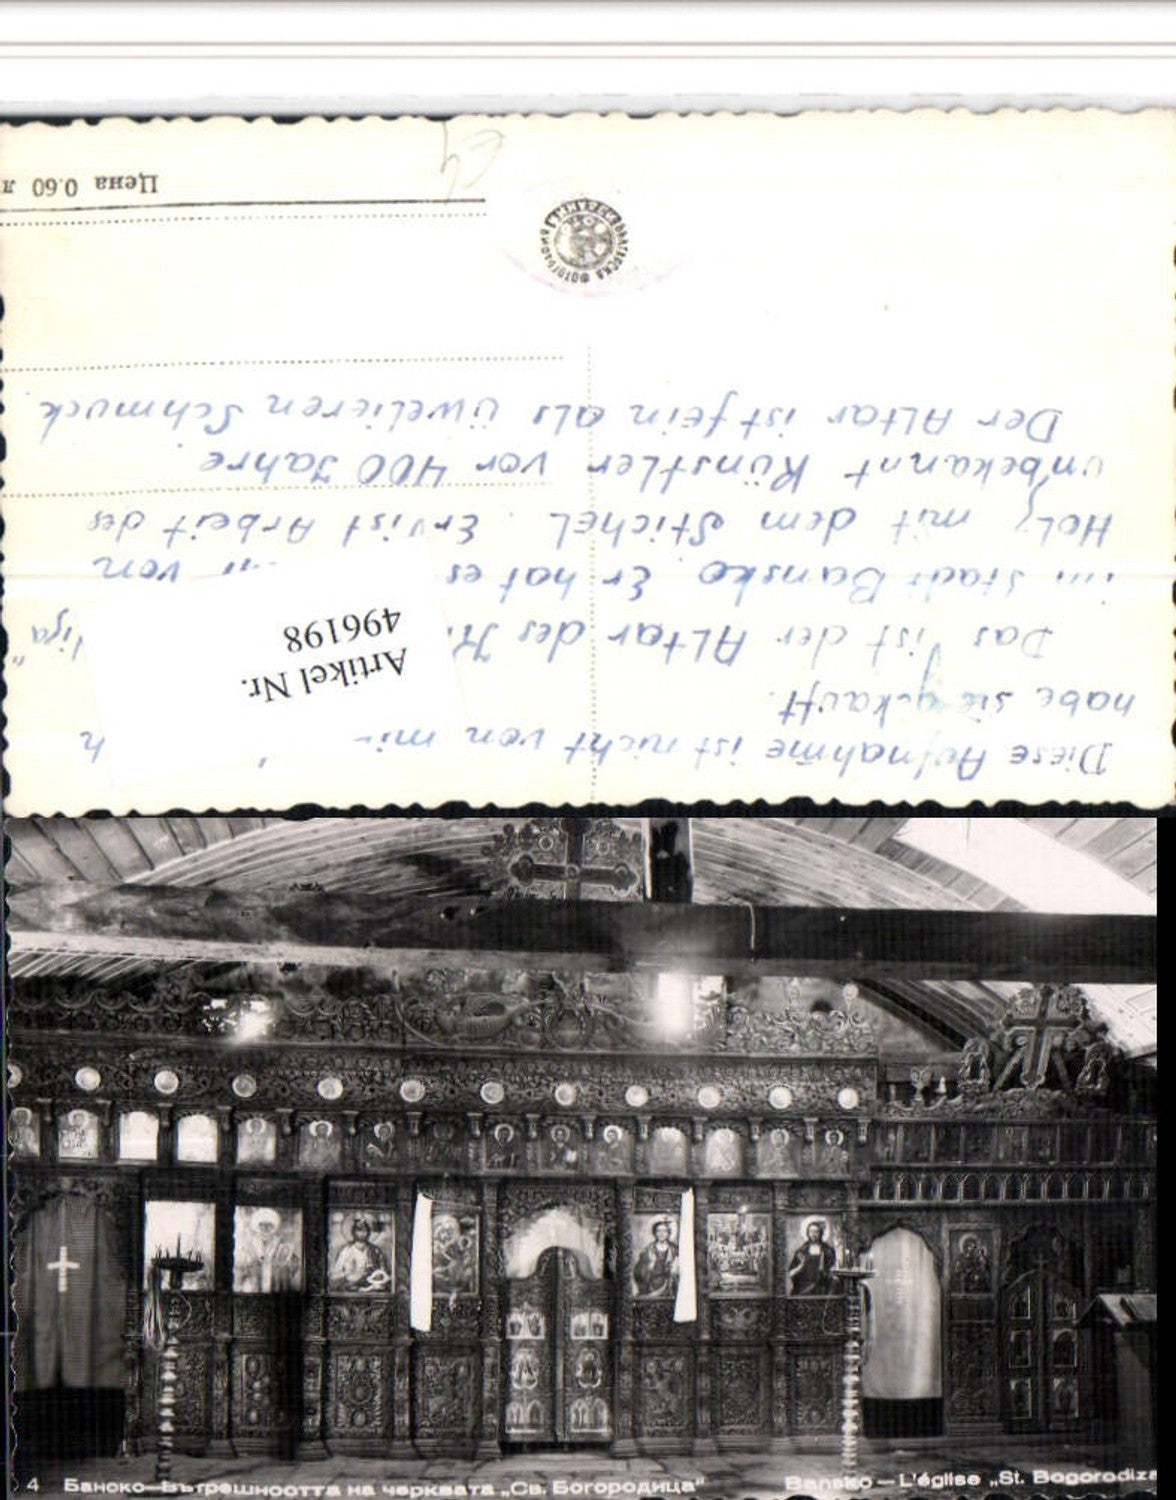 Diese Aufnahme ist nicht von mir h
habe sie gekauft.
Das ist der Altar des
im Stadt Bansko. Er hat es von
Holz mit dem Stichel. Er ist Arbeit des
unbekannt Künstler vor 400 Jahre.
Der Altar ist fein als üwelieren Schmuck.
Artikel Nr.
496198
Цена 0.60 л
4 Банско—Вътрешността на черквата „Св. Богородица"
Bansko — L'église „St. Bogorodiza